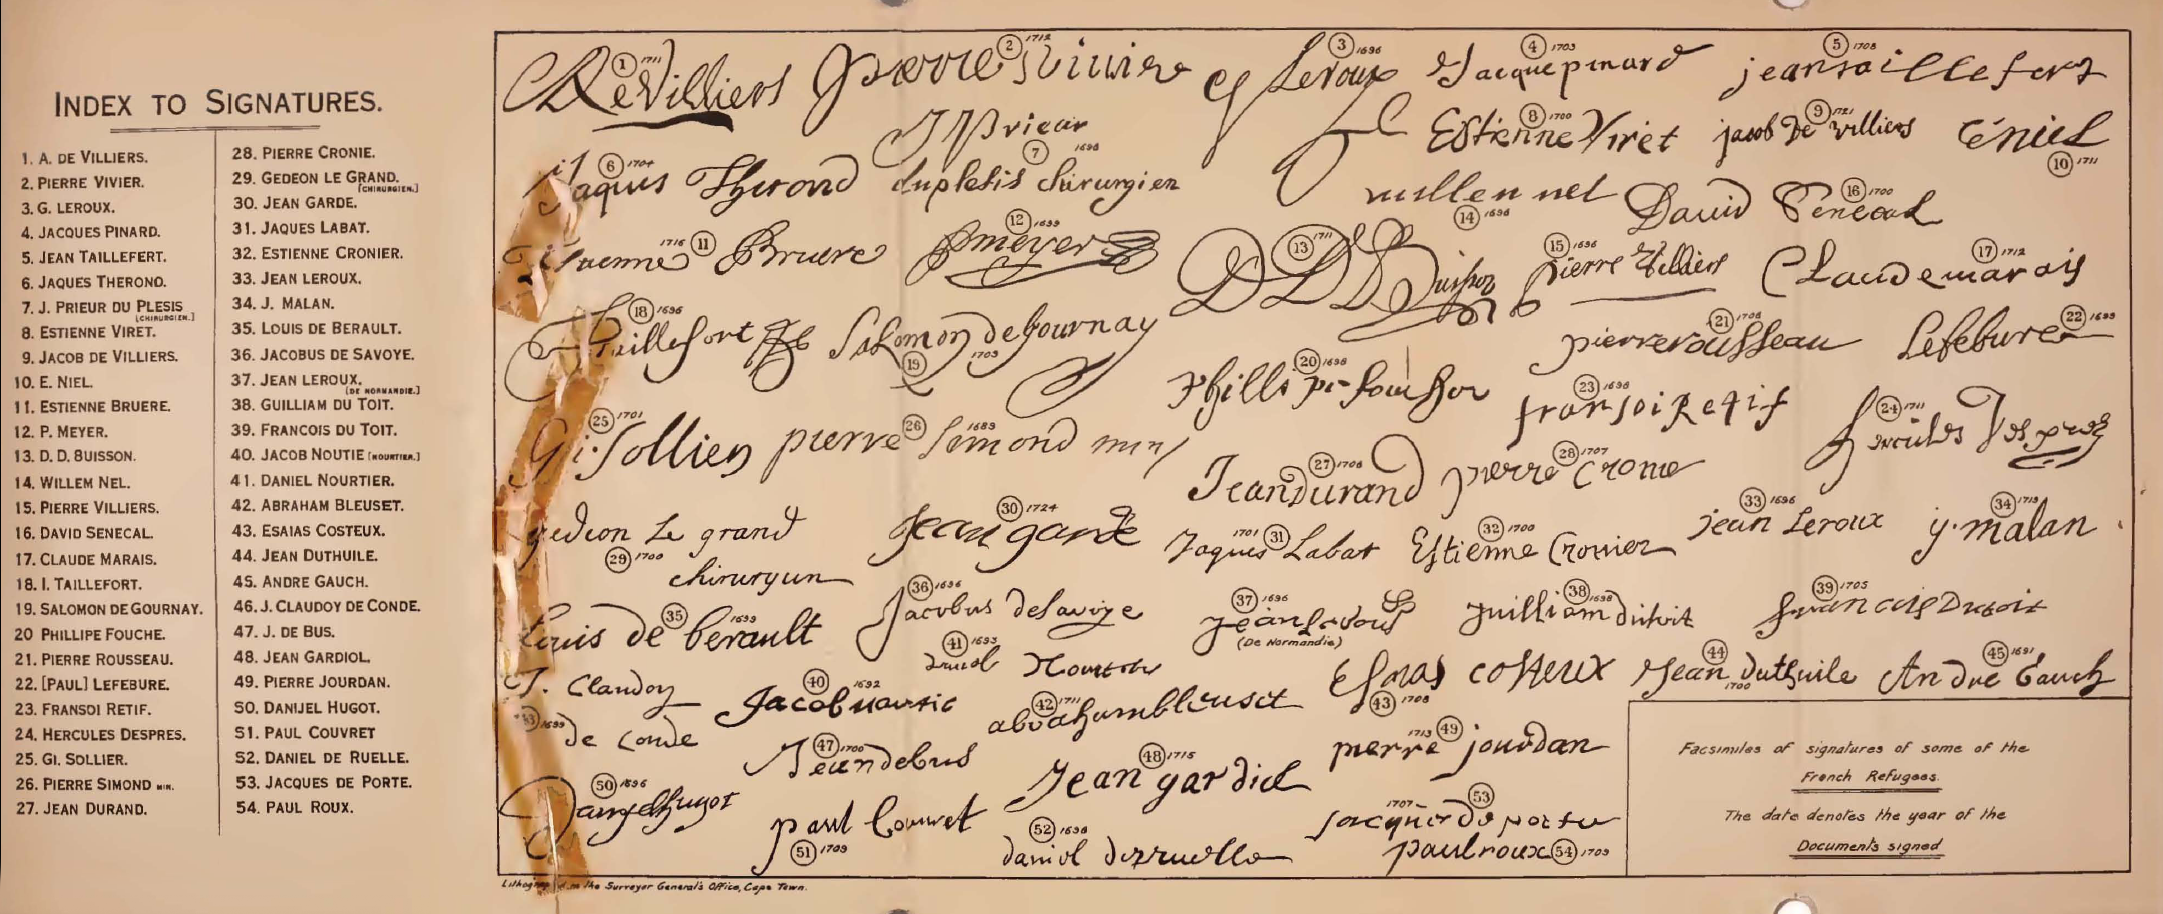 INDEX TO SIGNATURES.
1. A. DE VILLIERS.
2. PIERRE VIVIER.
3. G. LEROUX.
4. JACQUES PINARD.
5. JEAN TAILLEFERT.
6. JAQUES THEROND.
7. J. PRIEUR DU PLESIS
[CHIRURGIEN.]
8. ESTIENNE VIRET.
9. JACOB DE VILLIERS.
10. E. NIEL.
11. ESTIENNE BRUERE.
12. P. MEYER.
13. D. D. BUISSON.
14. WILLEM NEL.
15. PIERRE VILLIERS.
16. DAVID SENECAL.
17. CLAUDE MARAIS.
18. I. TAILLEFORT.
19. SALOMON DE GOURNAY.
20 PHILLIPE FOUCHE.
21. PIERRE ROUSSEAU.
22. [PAUL] LEFEBURE.
23. FRANSOI RETIF.
24. HERCULES DESPRES.
25. GI. SOLLIER.
26. PIERRE SIMOND MIN.
27. JEAN DURAND.
28. PIERRE CRONIE.
29. GEDEON LE GRAND.
[CHIRURGIEN.]
30. JEAN GARDE.
31. JAQUES LABAT.
32. ESTIENNE CRONIER.
33. JEAN LEROUX.
34. J. MALAN.
35. LOUIS DE BERAULT.
36. JACOBUS DE SAVOYE.
37. JEAN LEROUX.
[DE NORMANDIE.]
38. GUILLIAM DU TOIT.
39. FRANCOIS DU TOIT.
40. JACOB NOUTIE [NOURTIER.]
41. DANIEL NOURTIER.
42. ABRAHAM BLEUSET.
43. ESAIAS COSTEUX.
44. JEAN DUTHUILE.
45. ANDRE GAUCH.
46. J. CLAUDOY DE CONDE.
47. J. DE BUS.
48. JEAN GARDIOL.
49. PIERRE JOURDAN.
50. DANIJEL HUGOT.
51. PAUL COUVRET
52. DANIEL DE RUELLE.
53. JACQUES DE PORTE.
54. PAUL ROUX.
1 1711 2 1712 3 1696 4 1703 5 1708
DeVilliers pierre Vivier G Leroux Jacque pinard jean taillefert
J Prieur 8 1700 9 1721
7 1698 Estienne Viret jacob De villiers E niel
6 1704 10 1711
Jaques Therond dupletis chirurgien
willem nel David Senecal
14 1696 16 1700
1716 11 12 1699 13 1711 15 1696 17 1712
Estienne Bruere P meyer D D Buisson pierre Villiers Claude marais
18 1696
Taillefort Salomon de gournay pierre rousseau Lefebure
19 1703 21 1708 22 1699
20 1698 23 1698 24 1711
fransoi Retif Hercules Des prez
25 1701 26 1689
Gi. Sollier pierre Simond min
27 1708 28 1707
Jean Durand pierre Cronie
gedeon Le grand
29 1700
chirurgien
30 1724 1701 31 32 1700 33 1696 34 1713
jean garde Jaques Labat Estienne Cronier jean Leroux j. malan
35 1699 36 1696 37 1696 38 1698 39 1705
Louis de berault Jacobus de Savoye jean Leroux guilliam dutoit francois Dutoit
(De Normandie)
41 1693
Daniel Nourtier
J. Claudoy 40 1692 42 1711 43 1708 44 1700 45 1691
Jacob nourtie abraham bleuset Esaias costeux Jean duthuile Andre Gauch
1699
de Conde
47 1700 48 1715 1713 49
Jean debus Jean gardiol pierre jourdan
50 1696
Daniel hugot
51 1709 52 1698 1707 53
paul Couvret daniel deruelle jacques De porte
paul roux 54 1709
Facsimiles of signatures of some of the
French Refugees.
The date denotes the year of the
Documents signed
the Surveyor General's Office, Cape Town.